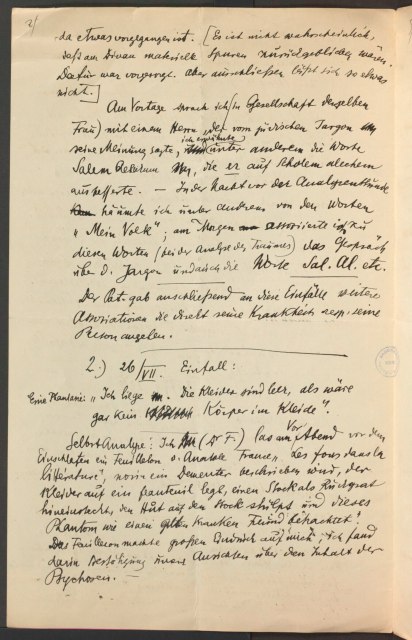 2/
da etwas vorgegangen ist. [Es ist nicht wahrscheinlich,
daß am Divan materielle Spuren zurückgeblieben wären.
Dafür war vorgesorgt. Aber ausschließen läßt sich so etwas
nicht.]
Am Vortage sprach ich (in Gesellschaft derselben
Frau) mit einem Herrn, der vom jüdischen Jargon
seine Meinung sagte, ich erwähnte unter anderem die Worte
Salem Aleikum, die er auf Scholem alechem
ausbesserte. — In der Nacht vor der Analysenstunde
träumte ich unter anderem von den Worten
"Mein Volk"; am Morgen assoziierte ich zu
diesen Worten (bei der Analyse des Traumes) das Gespräch
über d. Jargon und auch die Worte Sal. Al. etc.
Der Pat. gab anschließend an diese Einfälle weitere
Assoziationen die direkt seine Krankheit resp. seine
Person angehen.
2.) 26/VII. Einfall:
Eine Phantasie: "Ich liege. Die Kleider sind leer, als wäre
gar kein Körper im Kleide".
Selbst Analyse: Ich (Dr F.) las am Vor Abend vor dem
Einschlafen ein Feuilleton v. Anatole France „Les fous dans la
litterature", worin ein Dementer beschrieben wird, der
Kleider auf ein fauteuil legt, einen Stock als Rückgrat
hineinsteckt, den Hut auf den Stock stülpt und dieses
Phantom wie einen kranken Freund betrachtet.
Das Feuilleton machte großen Eindruck auf mich; ich fand
darin Bestätigung unserer Ansichten über den Inhalt der
Psychosen. —